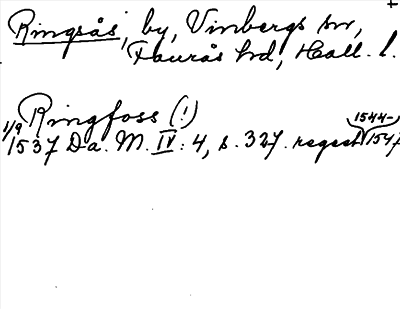 Ringsås, by, Vinbergs sn,
Faurås hd, Hall. l.
Ringfoss (!)
1544-
1/9 1537 Da. M. IV: 4, s. 327. regest 1547